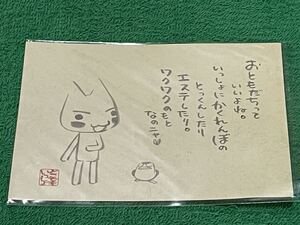 おともだちって
いいよね。
いっしょにかくれんぼの
とっくんしたり
エステしたり。
ワクワクのもと
なのニャ